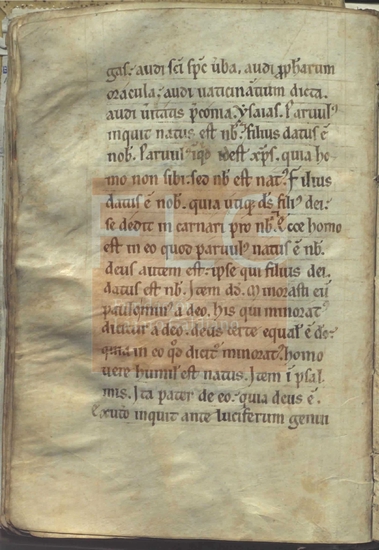 gas. audi sc̄i sp̄c uba. audi p̄phetarum
oracula. audi uaticinātium dicta.
audi ūitatis p̄conia. Ysaias. Paruul᾿
inquit natus est nb̄. filius datus ē
nob̄. Paruul᾿ est xp̄s. quia ho
mo non sibi. sed nb̄ est nat᾿. Filius
datus ē nob̄. quia utiq; dс̄ fili᾿ dei.
se dedit in carnari pro nb̄. Ecce homo
est in eo quod paruul᾿ natus ē nb̄.
deus autem est. ipse qui filius dei.
datus est nb̄. Item dd̄. Minorasti eū
paulominu᾿ a deo. his qui minorat᾿
dicitur a deo. deus certe equal᾿ ē deo.
quia in eo qd̄ dicit᾿ minorat᾿. homo
uere humil᾿ est natus. Item ī psal
mis. Ita pater de eo. quia deus ē.
Ex utō inquit ante luciferum genui